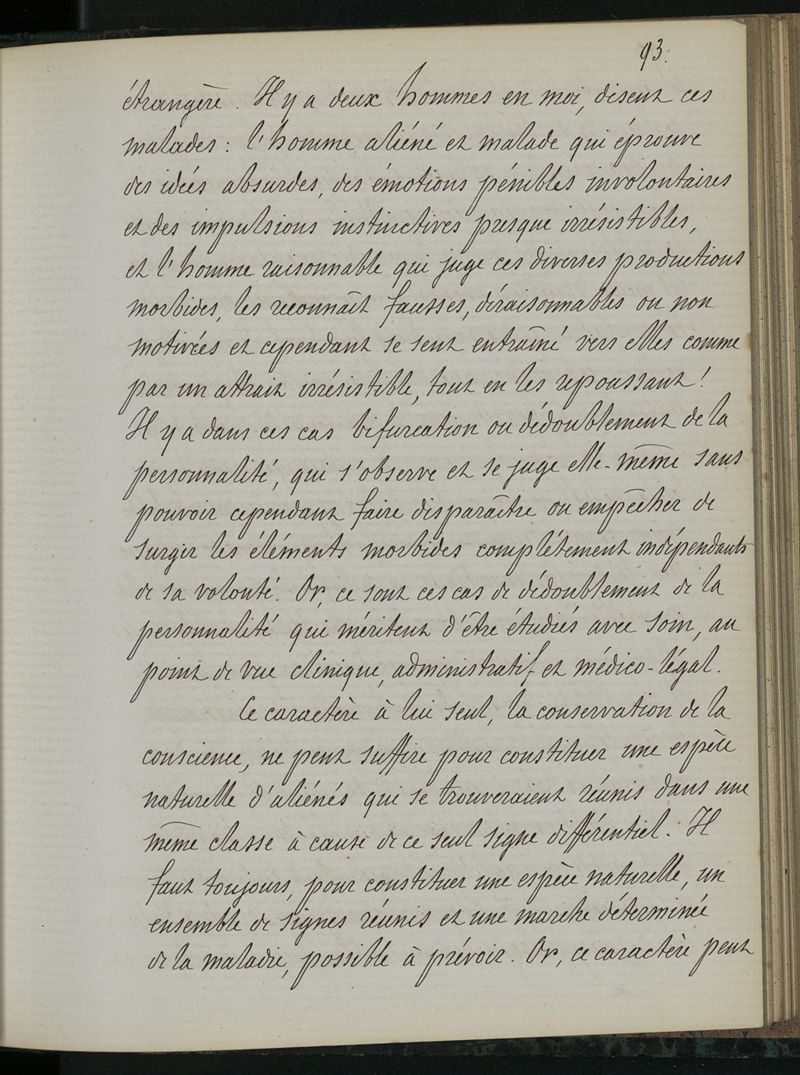 93.
étrangère. Il y a deux hommes en moi, disent ces
malades : l'homme aliéné et malade qui éprouve
des idées absurdes, des émotions pénibles involontaires
et des impulsions instinctives presque irrésistibles,
et l'homme raisonnable qui juge ces diverses productions
morbides, les reconnaît fausses, déraisonnables ou non
motivées et cependant se sent entraîné vers elles comme
par un attrait irrésistible, tout en les repoussant !
Il y a dans ces cas bifurcation ou dédoublement de la
personnalité, qui s'observe et se juge elle-même sans
pouvoir cependant faire disparaître ou empêcher de
surgir les éléments morbides complétement indépendants
de sa volonté. Or, ce sont ces cas de dédoublement de la
personnalité qui méritent d'être étudiés avec soin, au
point de vue clinique, administratif et médico-légal.
Ce caractère à lui seul, la conservation de la
conscience, ne peut suffire pour constituer une espèce
naturelle d'aliénés qui se trouveraient réunis dans une
même classe à cause de ce seul signe différentiel. Il
faut toujours, pour constituer une espèce naturelle, un
ensemble de signes réunis et une marche déterminée
de la maladie, possible à prévoir. Or, ce caractère peut